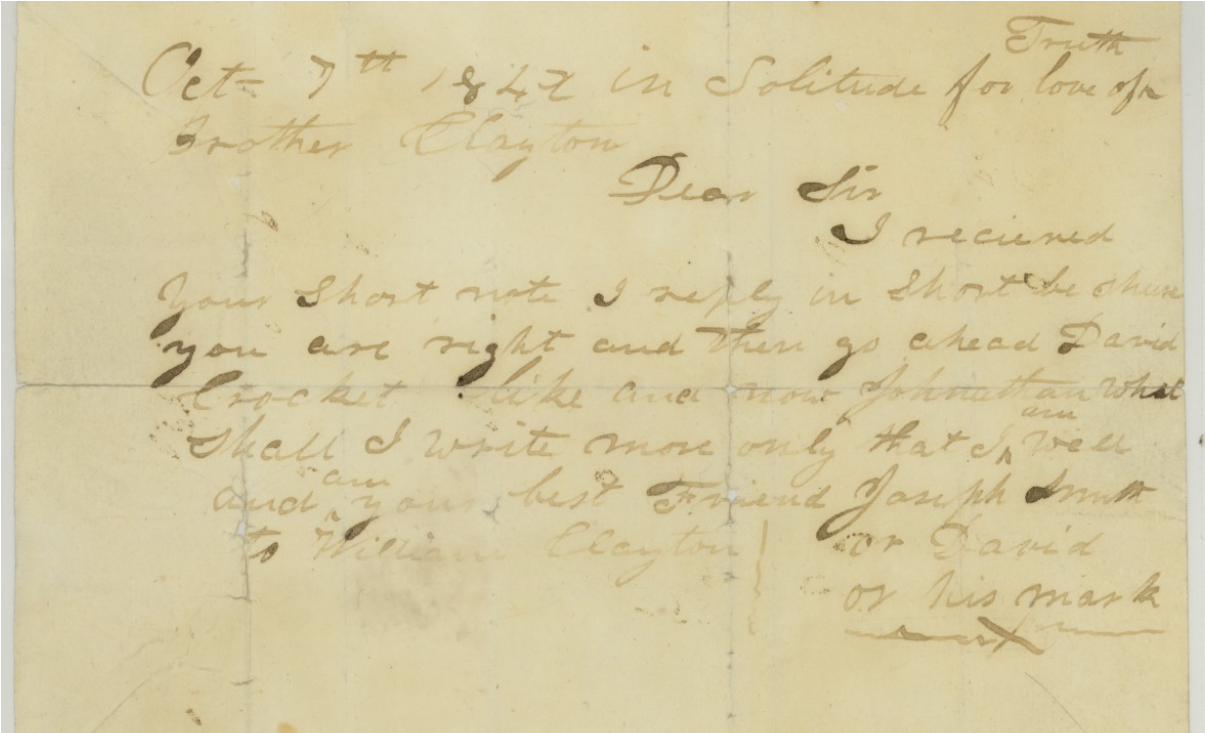 Oct- 7th 1842 in Solitude for love of Truth
Brother Clayton
Dear Sir
I recieved
Your Short note I reply in Short be shure
you are right and then go ahead David
Crocket like and now Johnathan what
shall I write more only that I am well
and am your best Friend Joseph Smith
to William Clayton or David
or his mark